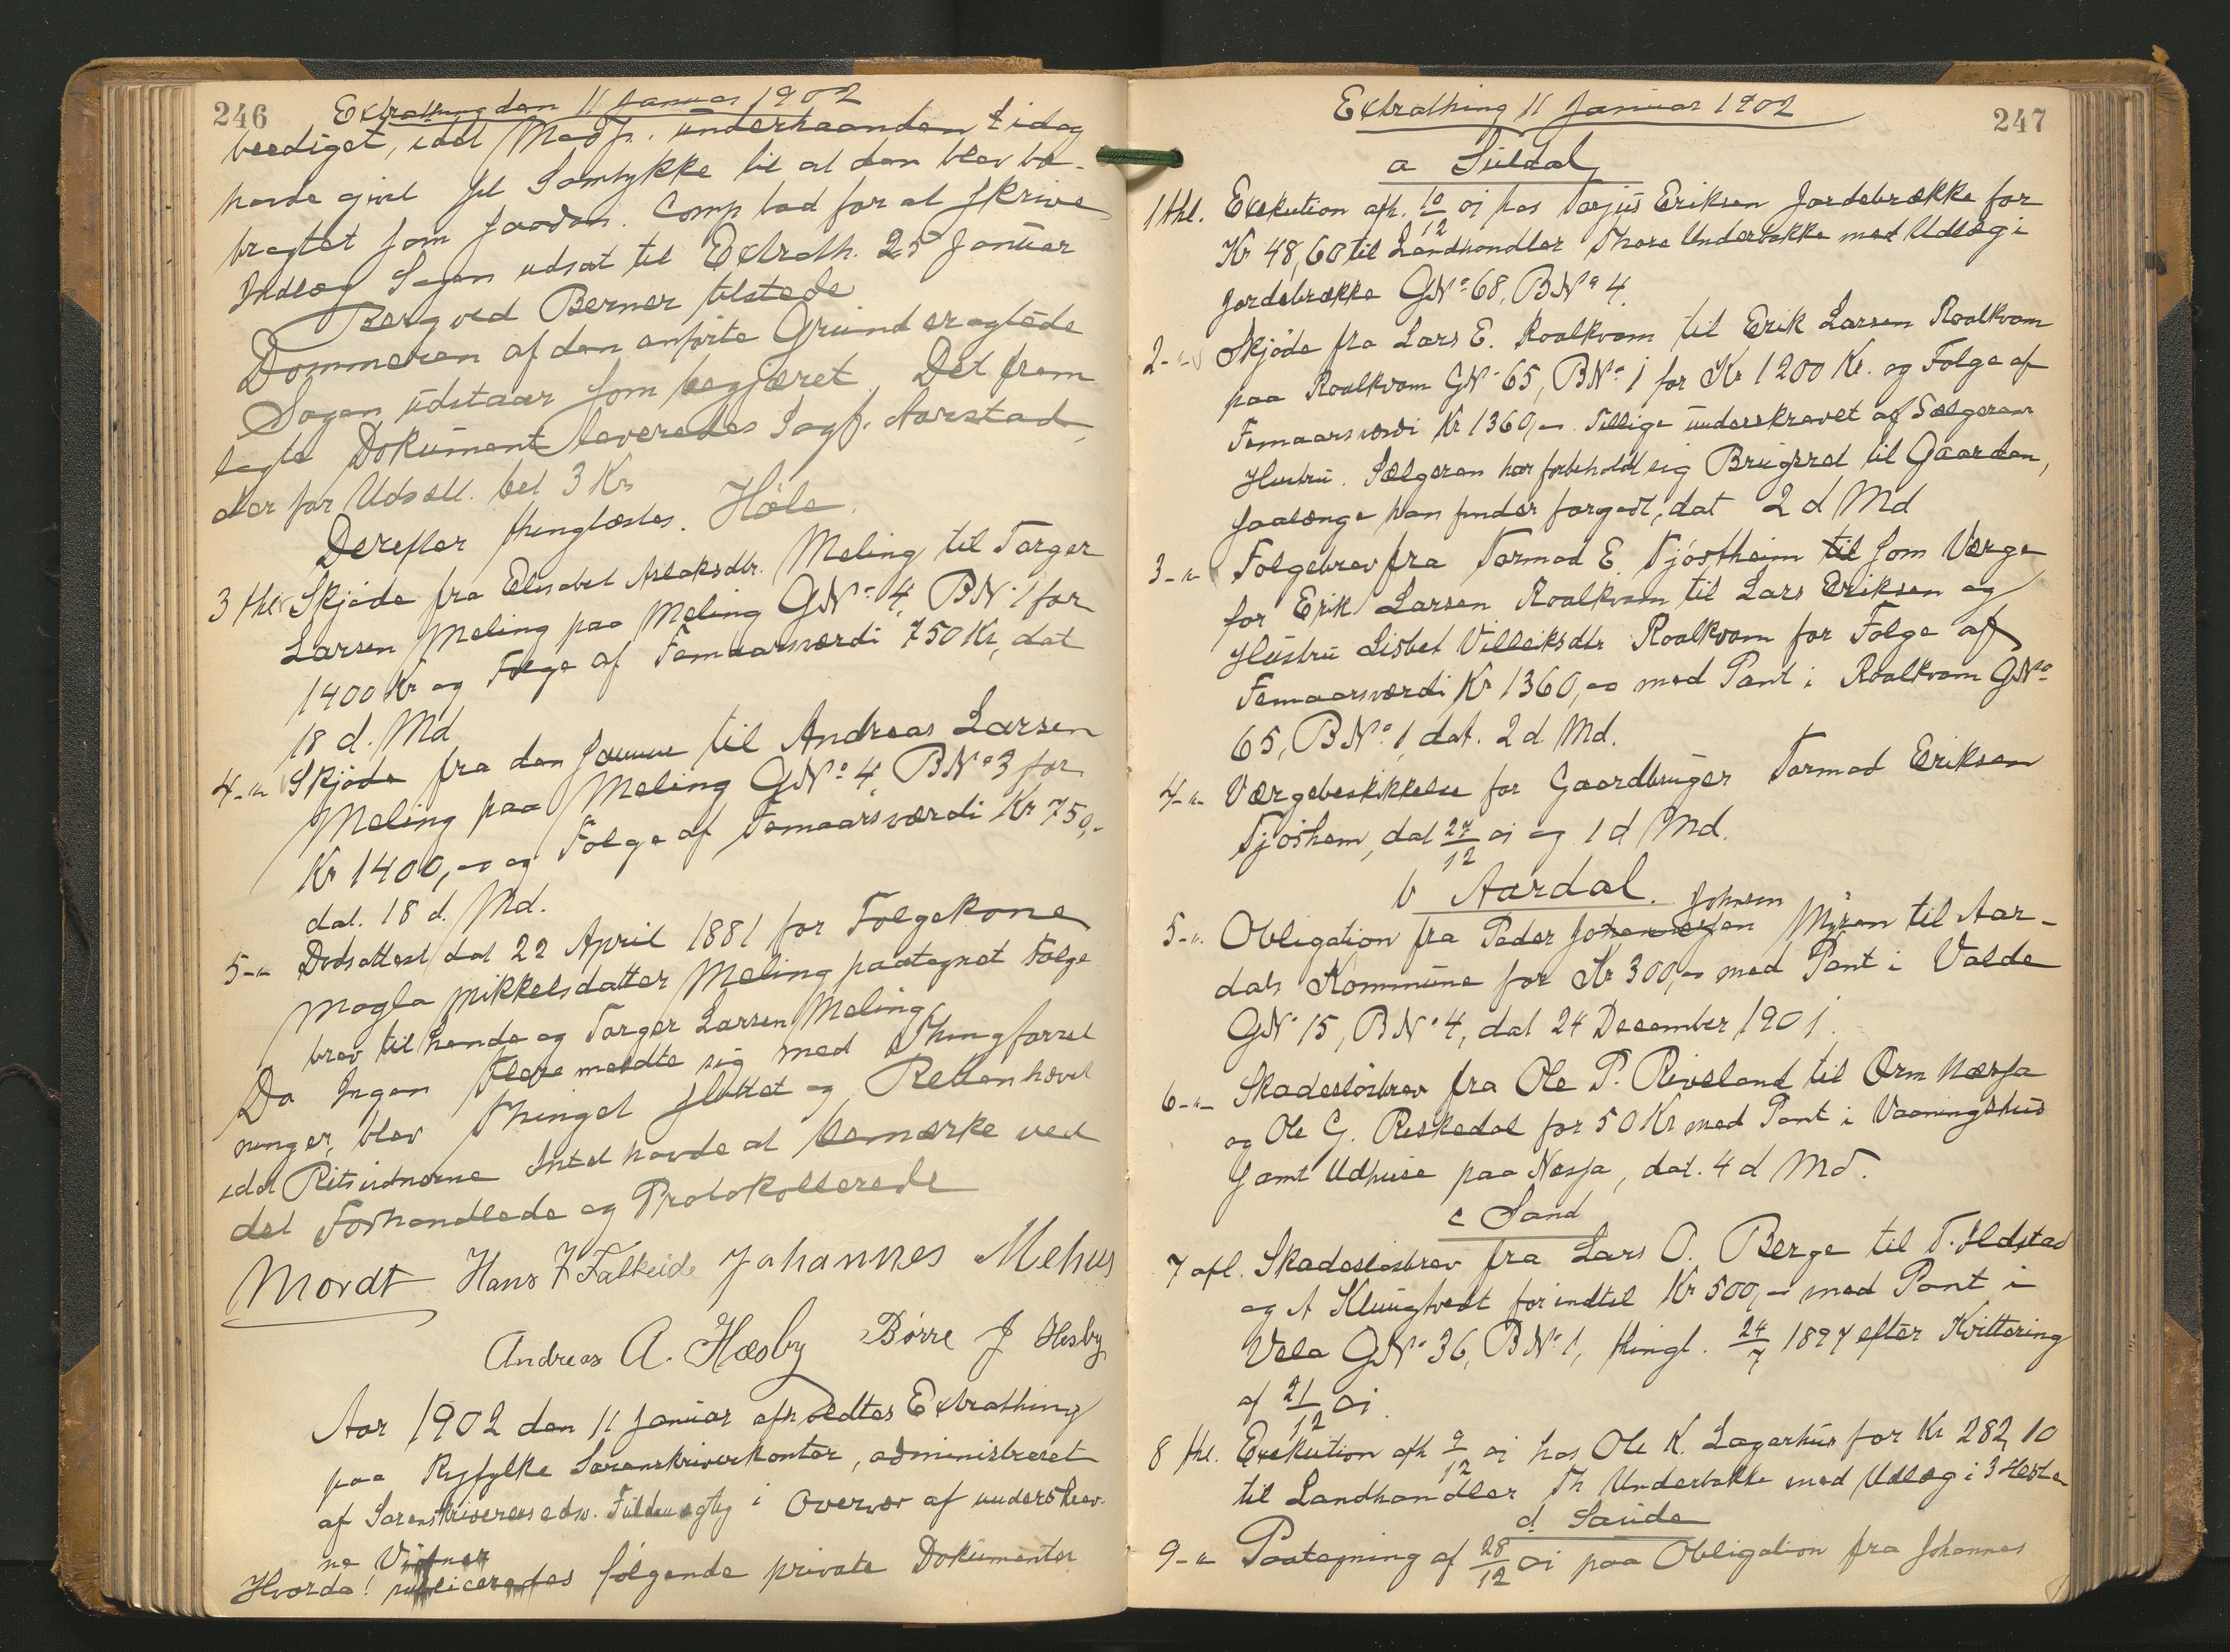 246
Extrathing den 11 Januar 1902
beediget, idet Modp. underhaanden tidag
havde givet sit Samtykke til at den blev be-
tragtet som saadan. Comp bad for at skrive
Indlæg Sagen udsat til Extrath. 25 Januar
Berg ved Berner tilstede
Dommeren af den anførte Grund eragtede
Sagen udstaar som begjæret. Det frem
lagte Dokument leveredes Sagf. Aarstad,
der for Udsætt. bet 3 Kr
Derefter thinglæstes. Høle.
3 thl. Skjøde fra Elisabet Aslaksdtr. Meling til Torger
Larsen Meling paa Meling GNo 4, BNo 1 for
1400 Kr og Folge af Femaarsværdi 750 Kr, dat
18 d. Md
4-"- Skjøde fra den samme til Andreas Larsen
Meling paa Meling GNo 4, BNo 3 for
Kr 1400,00 og Folge af Femaarsværdi Kr 750,-
dat. 18 d. Md.
5-"- Dødsattest dat 22 April 1881 for Folgekone
Magla Mikkelsdatter Meling paategnet Folge
brev til hende og Torger Larsen Meling
Da Ingen Flere meldte sig med Thingforret
ninger, blev Thinget sluttet og Retten hævet
idet Retsvidnerne Intet havde at bemærke ved
det Forhandlede og Protokollerede
Mordt Hans F Falkeide Johannes Mehus
Andreas A. Hæsby Børre J Hesby
Aar 1902 den 11 Januar afholdtes Extrathing
paa Ryfylke Sorenskriverkontor, administreret
af Sorenskriverens edsv. Fuldmægtig i Overvær af underskrev-
ne Vidner
Hvorda! publiceredes følgende private Dokumenter
247
Extrathing 11 Januar 1902
a Suldal
1 thl. Exekution afh. 10/12 01 hos Torjus Eriksen Jordebrække for
Kr 48,60 til Landhandler Thore Underbakke med Udlæg i
Jordebrække GNo 68, BNo 4.
2-"- Skjøde fra Lars E. Roalkvam til Erik Larsen Roalkvam
paa Roalkvam GNo 65, BNo 1 for Kr 1200 Kr. og Folge af
Femaarsværdi Kr 1360,00. Tillige underskrevet af Sælgerens
Hustru. Sælgeren har forbeholdt sig Brugsret til Gaarden,
saalænge han finder forgodt, dat 2 d Md
3-"- Folgebrev fra Tormod E. Tjøstheim til som Værge
for Erik Larsen Roalkvam til Lars Eriksen og
Hustru Lisbet Villeiksdtr Roalkvam for Folge af
Femaarsværdi Kr 1360,00 med Pant i Roalkvam GNo
65, BNo 1, dat. 2 d. Md.
4-"- Værgebeskikkelse for Gaardbruger Tormod Eriksen
Tjøshem, dat 27/12 01 og 1 d Md.
b Aardal.
5-"- Obligation fra Peder Johannesen Johnsen Myren til Aar-
dals Kommune for Kr 300,00 med Pant i Valde
GNo 15, BNo 4, dat 24 December 1901.
6-"- Skadesløsbrev fra Ole P. Riveland til Orm Næssa
og Ole G. Riskedal for 50 Kr med Pant i Vaaningshus
samt Udhuse paa Nessa, dat. 4 d Md.
c Sand
7 afl. Skadesløsbrev fra Lars O. Berge til T. Ildstad
og A Klungtvedt for indtil Kr 500,00 med Pant i
Vela GNo 36, BNo 1, thingl. 24/7 1897 efter Kvittering
af 21/12 01.
8 thl. Exekution afh 9/12 01 hos Ole K. Lagerhus for Kr 282,10
til Landhandler Th Underbakke med Udlæg i 3 Heste
d Saude
9-"- Paategning af 28/12 01 paa Obligation fra Johannes